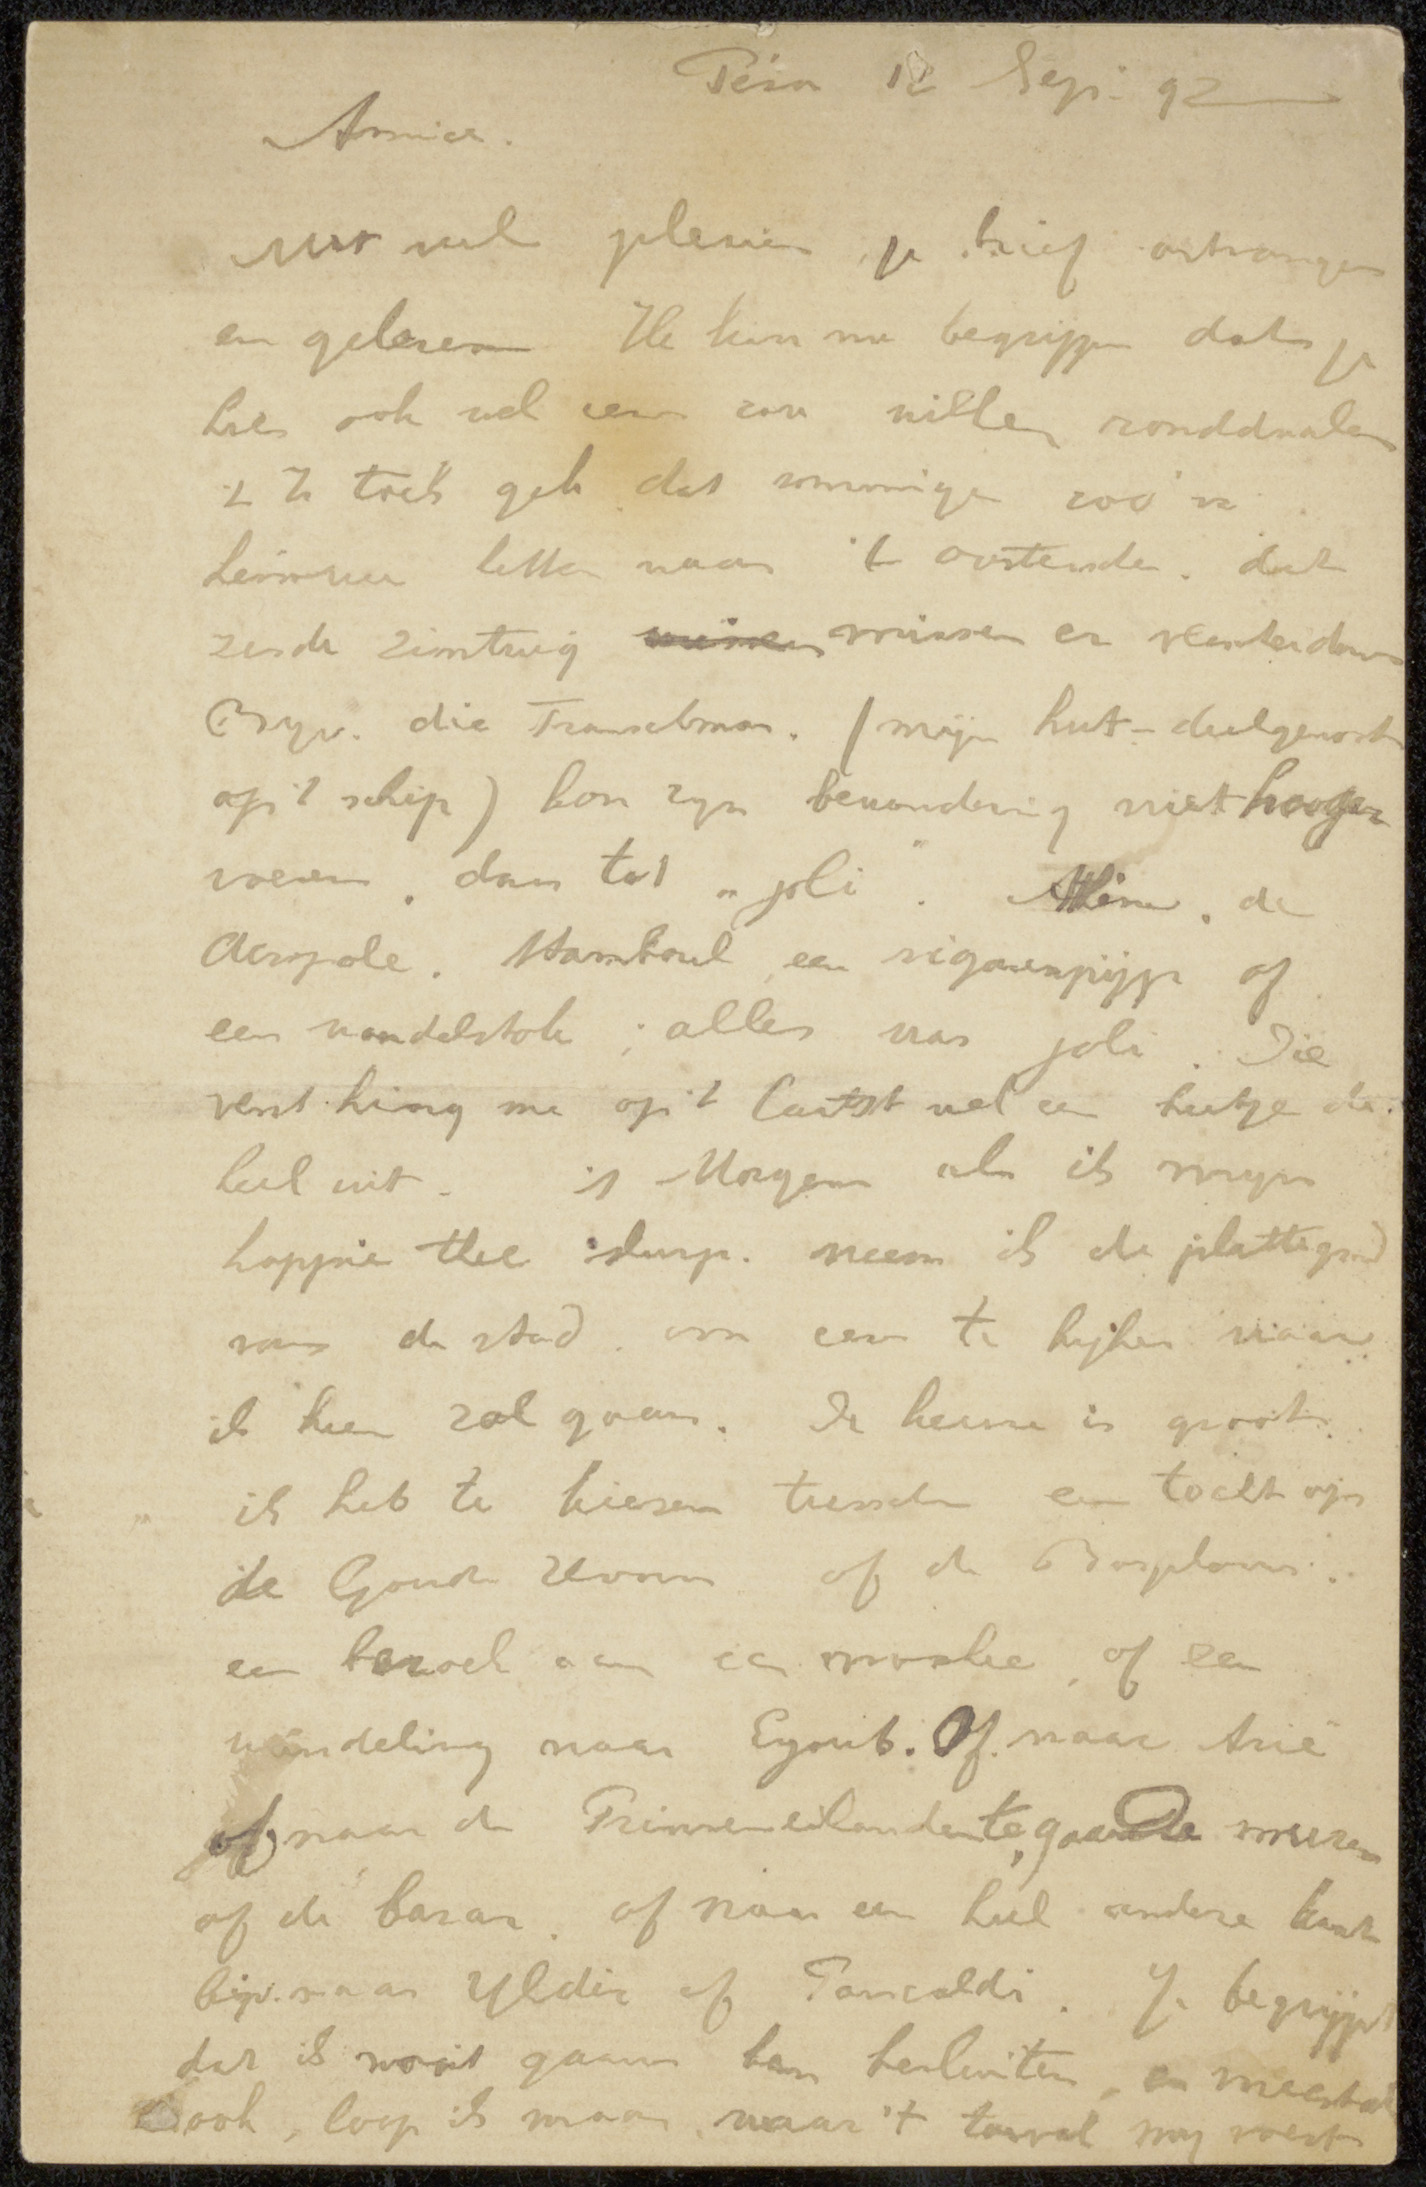 Péra 12 Sept. 92
Amice.
Met veel plesier je brief ontvangen
en gelezen Ik kan me begrijpen dat je
hier ook wel eens zou willen ronddwalen
't Is toch gek dat sommige zoo'n
letten naar 't oosten. dat
zesde zintuig missen er
Bijv. die Franschman. (mijn hut-deelgenoot
op 't schip) kon zyn bewondering niet hooger
voeren, dan tot "joli". Athene, de
Acropole. Stamboul, een sigarenpijpje of
een wandelstok; alles was joli. Die
vent hing me op 't laatst wel een beetje de
keel uit. 's Morgens als ik myn
koppie thee slurp. neem ik de plattegrond
van de stad om eens te kijken waar
ik heen zal gaan. De keuze is groot.
ik heb te kiezen tusschen een tocht op
de Gouden Hoorn of de Bosphorus.
een bezoek aan een moskee, of een
wandeling naar Eyoub. Of naar Azië
of naar de Prinseneilanden te gaan De muren
of de bazar, of naar een heel andere kant
bijv. naar Yldiz of Pancaldi. Je begrijpt
dat ik nooit gauw kan besluiten, en meestal
ook, loop ik maar waar 't toeval my voert